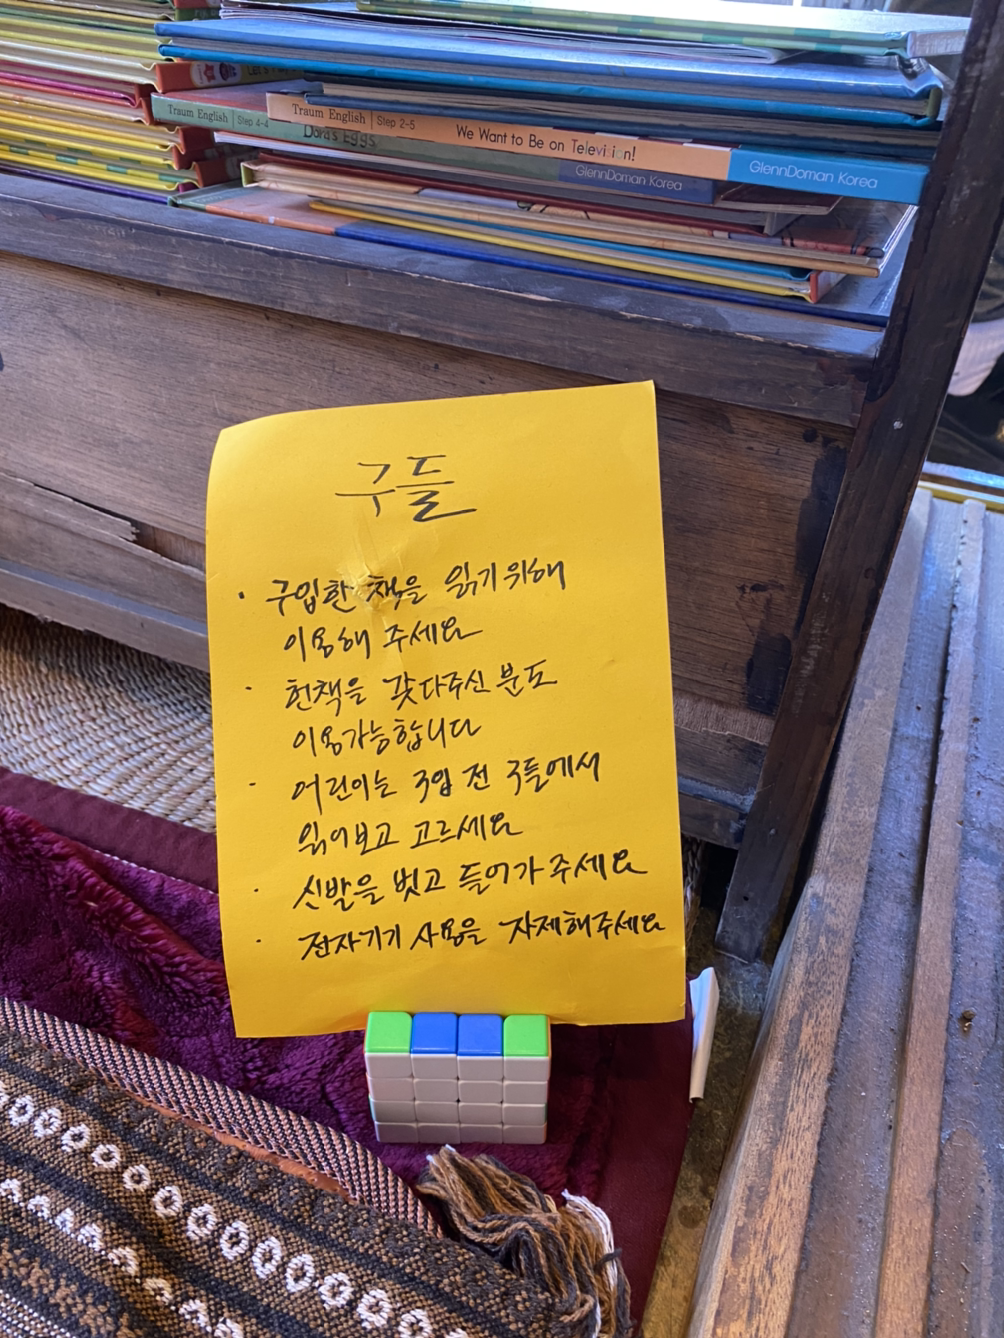 Let's
Traum English | Step 2-5 We Want to Be on Television! GlennDoman Korea
Traum English | Step 4-4 Dora's Eggs GlennDoman Korea
구들
· 구입한 책을 읽기 위해
이용해 주세요
· 헌책을 갖다주신 분도
이용가능합니다
· 어린이는 구입 전 구들에서
읽어보고 고르세요
· 신발을 벗고 들어가 주세요
· 전자기기 사용을 자제해주세요